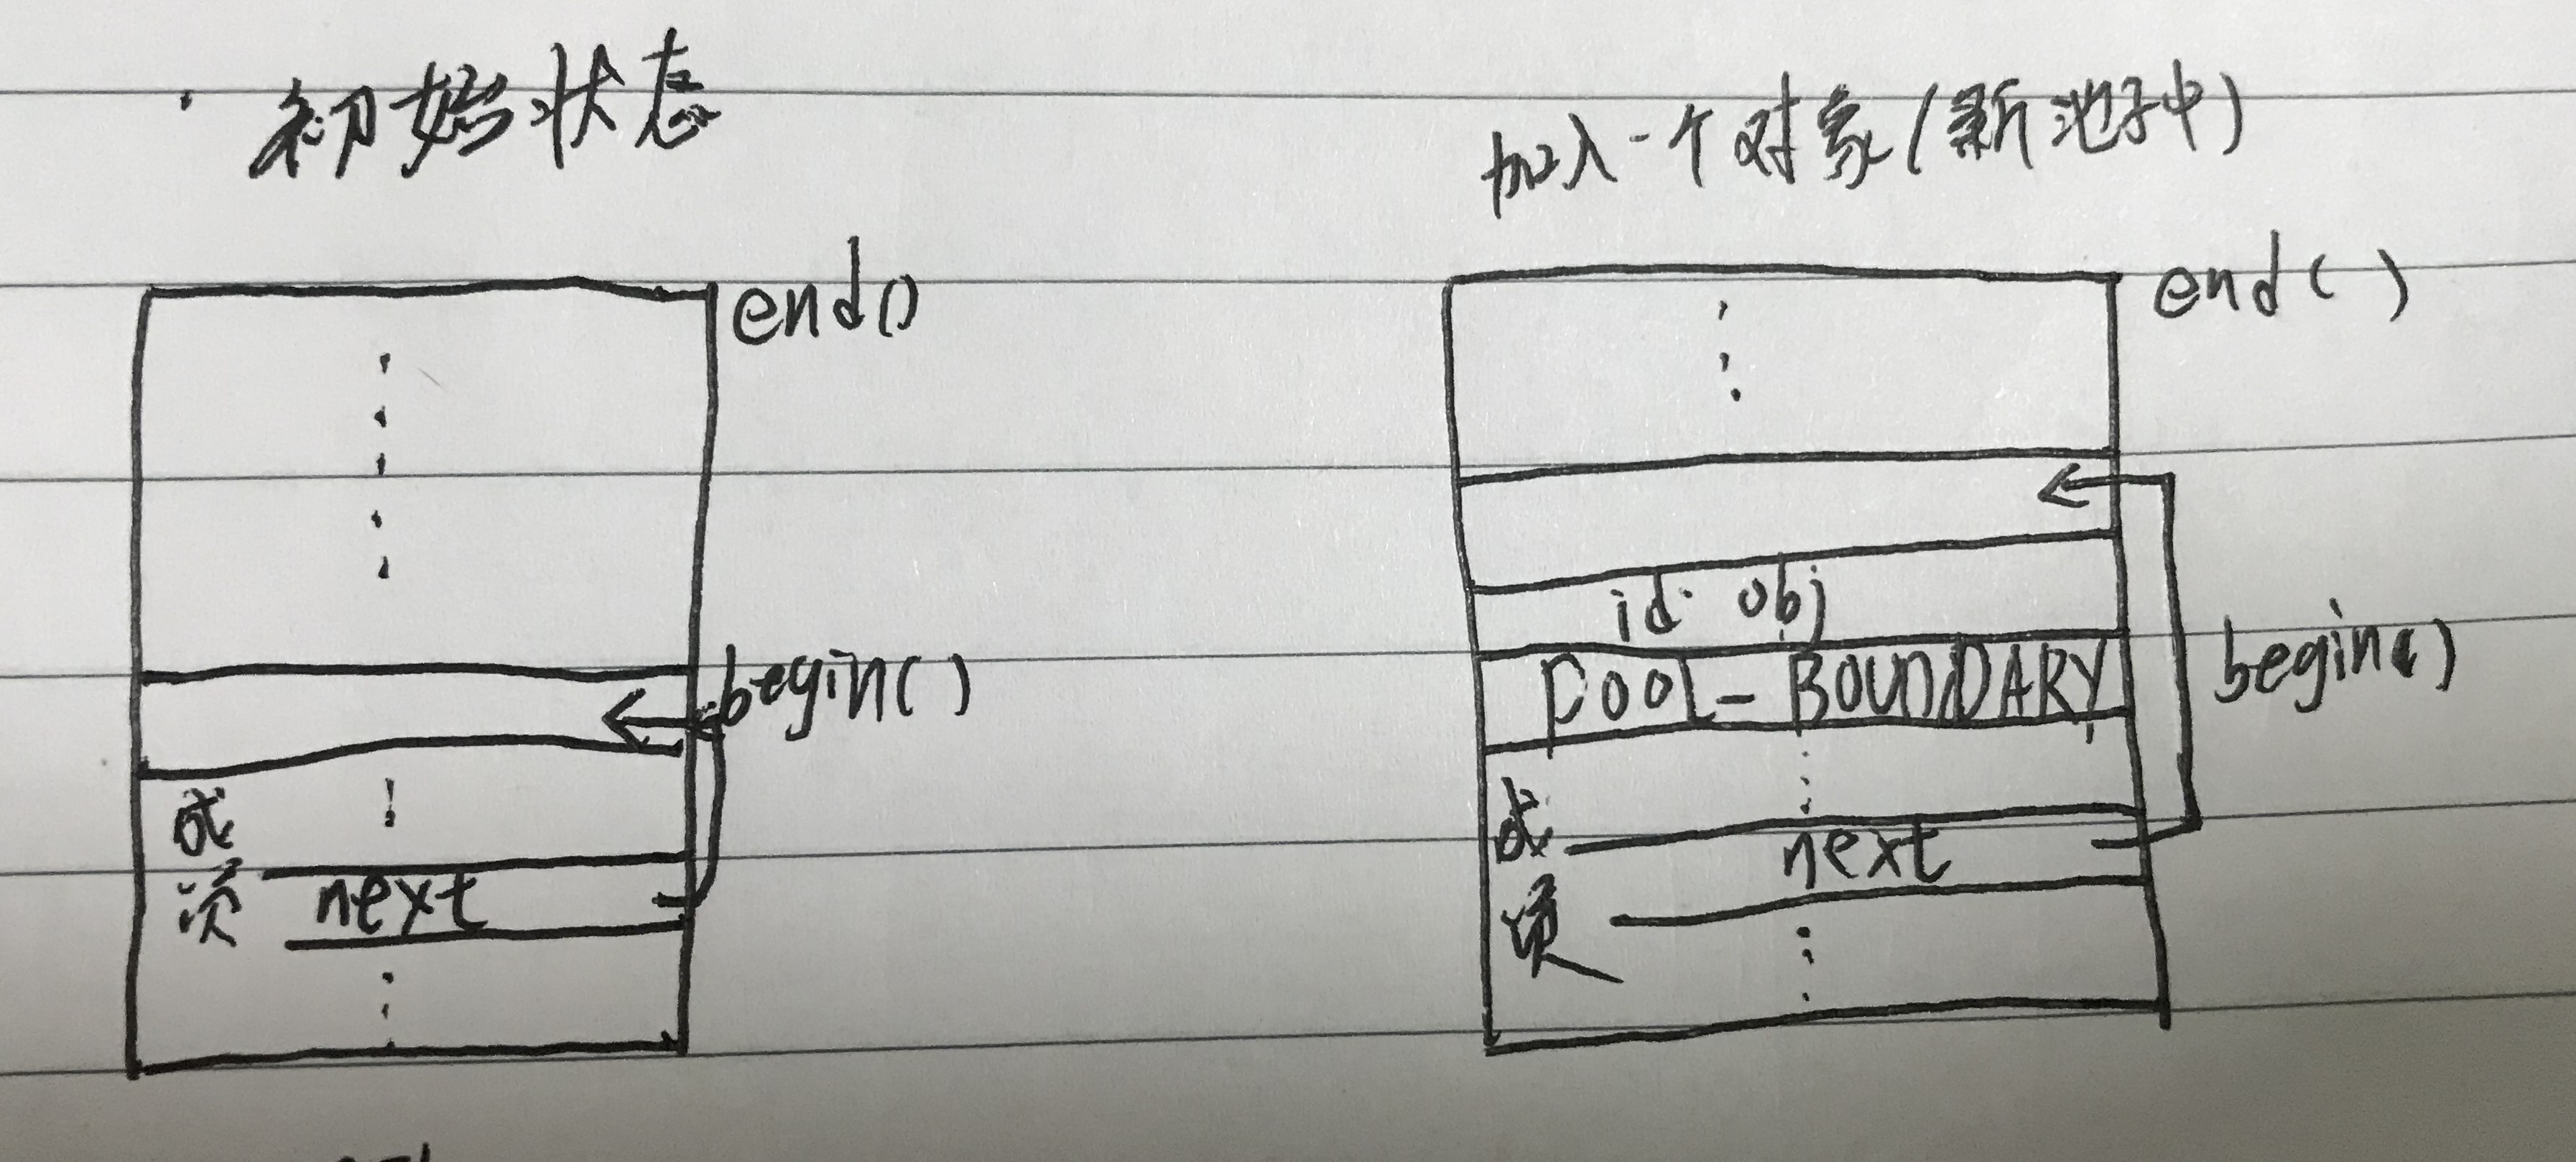 初始状态
end()
begin()
成
员
next
加入一个对象(新池子中)
end( )
id obj
POOL-BOUNDARY
begin()
成
员
next